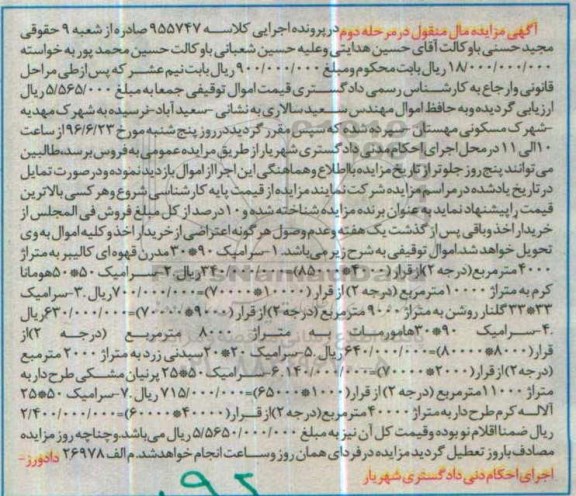 آگهی مزایده مال منقول در مرحله دوم در پرونده اجرایی کلاسه ۹۵۵۷۴۷ صادره از شعبه ۹ حقوقی
مجید حسنی باوکالت آقای حسین هدایتی وعلیه حسین شعبانی باوکالت حسین محمد پور به خواسته
۱۸/۰۰۰/۰۰۰/۰۰۰ ریال بابت محکوم ومبلغ ۹۰۰/۰۰۰/۰۰۰ ریال بابت نیم عشر که پس از طی مراحل
قانونی وارجاع به کارشناس رسمی دادگستری قیمت اموال توقیفی جمعا به مبلغ ۵/۵۶۵/۰۰۰ ریال
ارزیابی گردیده وبه حافظ اموال مهندس سعید سالاری به نشانی -سعید آباد-نرسیده به شهرک مهدیه
-شهرک مسکونی مهستان -سپرده شده که سپس مقرر گردید در روز پنج شنبه مورخ ۹۶/۶/۲۳ از ساعت
۱۰الی ۱۱ در محل اجرای احکام مدنی دادگستری شهریار از طریق مزایده عمومی به فروش برسد،طالبین
می توانند پنج روز جلوتر از تاریخ مزایده با اطلاع وهماهنگی این اجرا از اموال بازدید نموده ودر صورت تمایل
در تاریخ یادشده در مراسم مزایده شرکت نمایند مزایده از قیمت پایه کارشناسی شروع وهر کسی بالاترین
قیمت را پیشنهاد نماید به عنوان برنده مزایده شناخته شده و ۱۰ درصد از کل مبلغ فروش فی المجلس از
خریدار اخذ وباقی پس از گذشت یک هفته وعدم وصول هر گونه اعتراضی از خریدار اخذ و کلیه اموال به وی
تحویل خواهد شد.اموال توقیفی به شرح زیر می باشد. ۱-سرامیک ۹۰*۳۰ مدرن قهوه ای کالیبر به متراژ
۴۰۰۰ مترمربع(درجه ۲)از قرار (۴۰۰۰*۸۵۰۰۰)=۳۴۰/۰۰۰/۰۰۰ریال ۲-سرامیک ۵۰*۵۰هومانا
کرم به متراژ ۱۰۰۰۰مترمربع (درجه ۲) از قرار (۱۰۰۰۰*۷۰۰۰۰)=۷۰۰/۰۰۰/۰۰۰ریال .۳-سرامیک
۳۳*۳۳ گلنار روشن به متراژ ۹۰۰۰ مترمربع (درجه ۲)از قرار (۹۰۰۰*۷۰۰۰۰)=۶۳۰/۰۰۰/۰۰۰ریال
.۴-سرامیک ۹۰*۳۰هامورمیات به متراژ ۸۰۰۰ مترمربع (درجه ۲)از
قرار(۸۰۰۰*۸۰۰۰۰)=۶۴۰/۰۰۰/۰۰۰ ریال .۵-سرامیک ۲۰*۲۰سیدنی زرد به متراژ ۲۰۰۰ مترمربع
(درجه ۲)از قرار(۲۰۰۰*۷۰۰۰۰)=۱۴۰/۰۰۰/۰۰۰ .۶-سرامیک ۵۰*۲۵ پرنیان مشکی طرح دار به
متراژ ۱۱۰۰۰مترمربع (درجه ۲) از قرار (۱۱۰۰۰*۶۵۰۰۰)=۷۱۵/۰۰۰/۰۰۰ ریال .۷-سرامیک ۵۰*۲۵
آلاله کرم طرح دار به متراژ ۴۰۰۰۰مترمربع(درجه ۲)از قرار(۴۰۰۰۰*۶۰۰۰۰)=۲/۴۰۰/۰۰۰/۰۰۰
ریال ضمنا اقلام نو بوده وقیمت کل آن نیز به مبلغ ۵/۵۶۵۰/۰۰۰/۰۰۰ ریال می باشد.وچناچه روز مزایده
مصادف با روز تعطیل گردید مزایده در فردای همان روز وساعت انجام خواهد شد.م الف ۲۶۹۷۸ دادورز-
اجرای احکام دنی دادگستری شهریار